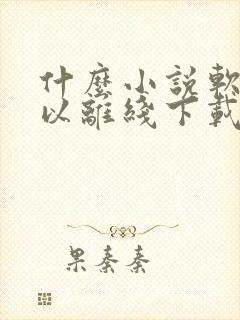 什麼小說軟
以離綫下載
果秦秦